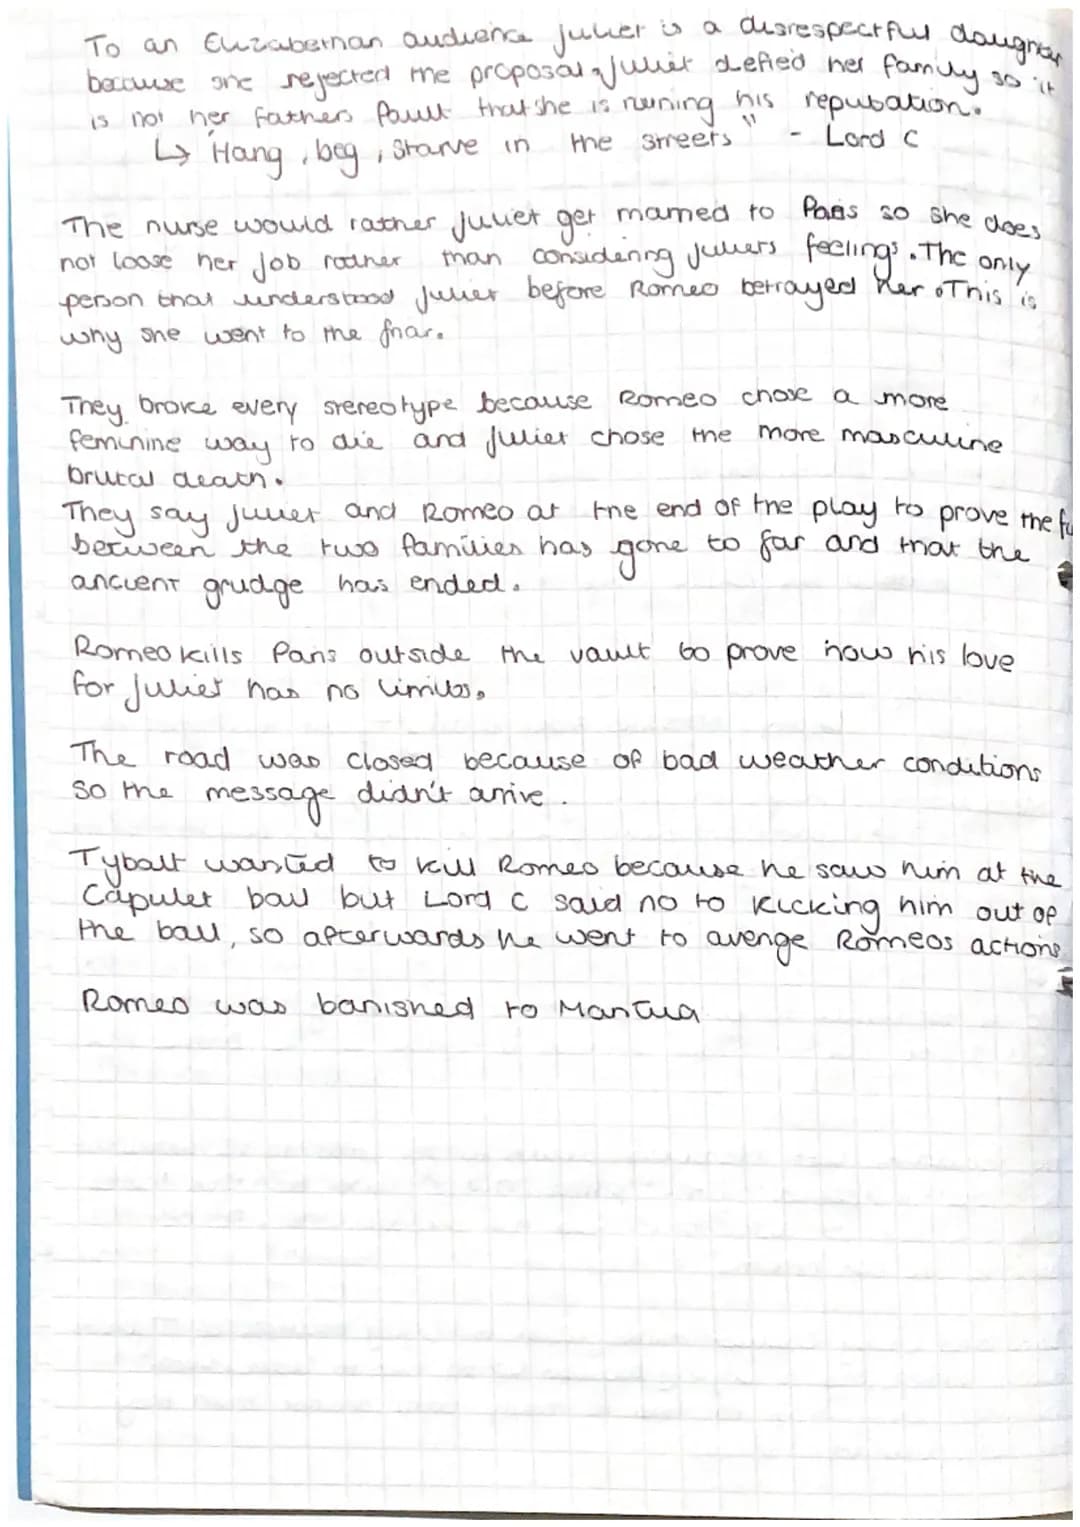 To an Elizabethan audience Juliet is a disrespectful daughter
because she rejected the proposal, Juliet defied her family so it
is not her fathers fault that she is ruining his reputation.
↳ "Hang, beg, starve in the streets" - Lord C
The nurse would rather Juliet get married to Paris so she does
not loose her job rather than considering Juliets feelings. The only
person that understood Juliet before Romeo betrayed her. This is
why she went to the friar.
They broke every stereotype because Romeo chose a more
feminine way to die and Juliet chose the more masculine
brutal death.
They say Juliet and Romeo at the end of the play to prove the
between the two families has gone to far and that the
ancient grudge has ended.
Romeo kills Paris outside the vault to prove how his love
for Juliet has no limits.
The road was closed because of bad weather conditions
so the message didn't arrive.
Tybalt wanted to kill Romeo because he saw him at the
Capulet ball but Lord C said no to kicking him out of
the ball, so afterwards he went to avenge Romeos actions
Romeo was banished to Mantua